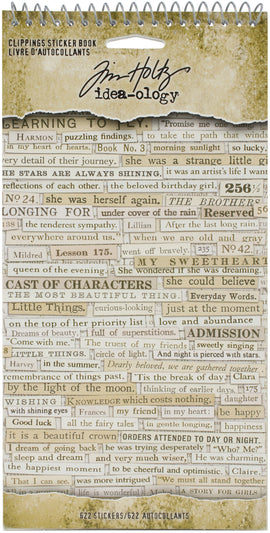 CLIPPINGS STICKER BOOK
LIVRE D'AUTOCOLLANTS
Tim Holtz
idea-ology
LEARNING TO FLY. Promise me
HARMON puzzling findings. to take the path that winds
in my heart. Book No. 3. morning sunlight so lucky.
very detail of their journey. she was a strange little
THE STARS ARE ALWAYS SHINING. it was an artist's life I want
reflections of each other. the beloved birthday girl. 256½
No 24. she was herself again. THE BROTHERS
LONGING FOR under cover of the rain Reserved
the tenderest sympathy. Lillian After the last long
everywhere around us. when we are old and gray
Mildred Lesson 175. went off bravely. 35 No 42.
MY SWEETHEART
queen of the evening. She wondered if she was dreaming.
CAST OF CHARACTERS she could believe
THE MOST BEAUTIFUL THING. Everyday Words.
Little Things. curious-looking just at the moment
on the top of her priority list love and abundance
Dreams of beauty. full of superstitions. ADMISSION
Come with me. The truest of my friends sweetly singing
LITTLE THINGS. circle of light. And night is pierced with stars.
Harvey in the summer. Dearly beloved, we are gathered together
remembrance of things past. It is the break of day. Lara
by the light of the moon. thinking of earlier days. 175
WISHING KNOWLEDGE which costs nothing, daughter
with shining eyes Frances my friend in my heart: be happy
Good luck all the fairy tales in gentle longing, happiness
it is a beautiful crown ORDERS ATTENDED TO DAY OR NIGHT.
I dream of going back he was trying desperately "Who? Me"
sleep and dream and very much wiser, He was charming,
the happiest moment to be cheerful and optimistic. Claire
That I can see. was more intrigued "We must all stand together
is a wonderful A STORY FOR GIRLS
622 STICKERS/622 AUTOCOLLANTS